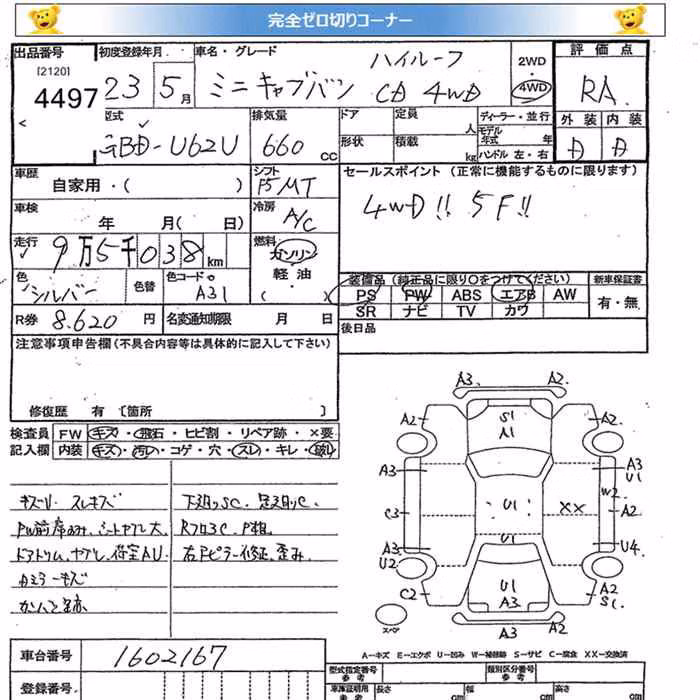 完全ゼロ切りコーナー
出品番号
[2120]
4497
初度登録年月
車名・グレード
23 5月
ミニキャブバン
ハイルーフ
CD 4WD
2WD
4WD
評価点
RA
型式
GBD-U62U
排気量
660 cc
ドア
定員
人
形状
積載
kg
ディーラー・並行
モデル年式
年
ハンドル 左・右
外装
内装
A
A
車歴
自家用・( )
シフト
F5MT
セールスポイント (正常に機能するものに限ります)
4WD!! 5F!!
車検
年 月( 日)
冷房
A/C
走行
9万5千038km
燃料
ガソリン
軽油
( )
色
シルバー
色替
色コードNo
A31
装備品 (純正品に限り○をつけてください)
新車保証書
PS PW ABS エアB AW
有・無
SR ナビ TV カワ
R券 8.620 円
名変通知期限 月 日
後日品
注意事項申告欄(不具合内容等は具体的に記入して下さい)
修復歴 有 〔箇所 〕
検査員
記入欄
FW キズ・飛石・ヒビ割・リペア跡・×要
内装 キズ・汚レ・コゲ・穴・スレ・キレ・破レ
キズU スレキズ
下廻りSC. 足廻りC.
Aミラーキズ
右Fピラー修正、歪み
A3 A2
A2 S1 A1 A2
A3 A3 U1
U1 XX W2
C3 A2
A3 U1 U4
U2 U1 A2
C2 A3 S1
A3 A2
スペア
A-キズ E-エクボ U-凹み W-補修跡 S-サビ C-腐食 XX-交換済
車台番号
1602167
登録番号
型式指定番号
参考
類別区分番号
参考
車庫証明用
参考
長さ cm
幅 cm
高さ cm